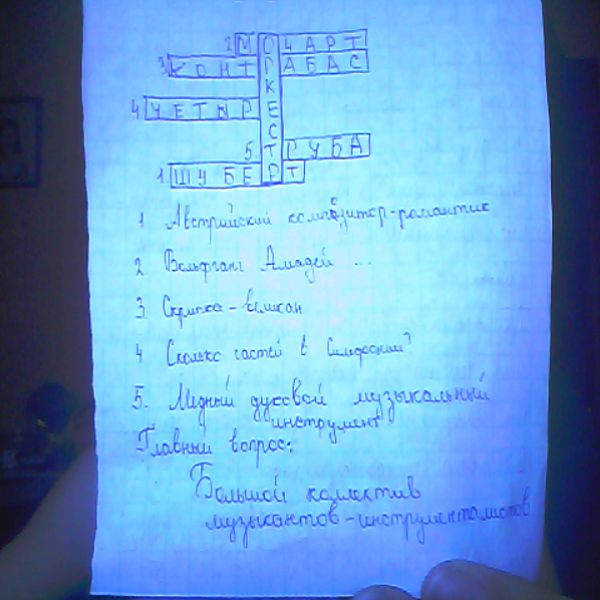 2 МОЦАРТ
3 КОНТРАБАС
К
4 ЧЕТЫРЕ
С
5. ТРУБА
1 ШУБЕРТ
1 Австрийский композитор-романтик
2 Вольфганг Амадей ...
3 Скрипка-великан
4 Сколько частей в Симфонии?
5. Медный духовой музыкальный
инструмент
Главный вопрос:
Большой коллектив
музыкантов-инструменталистов